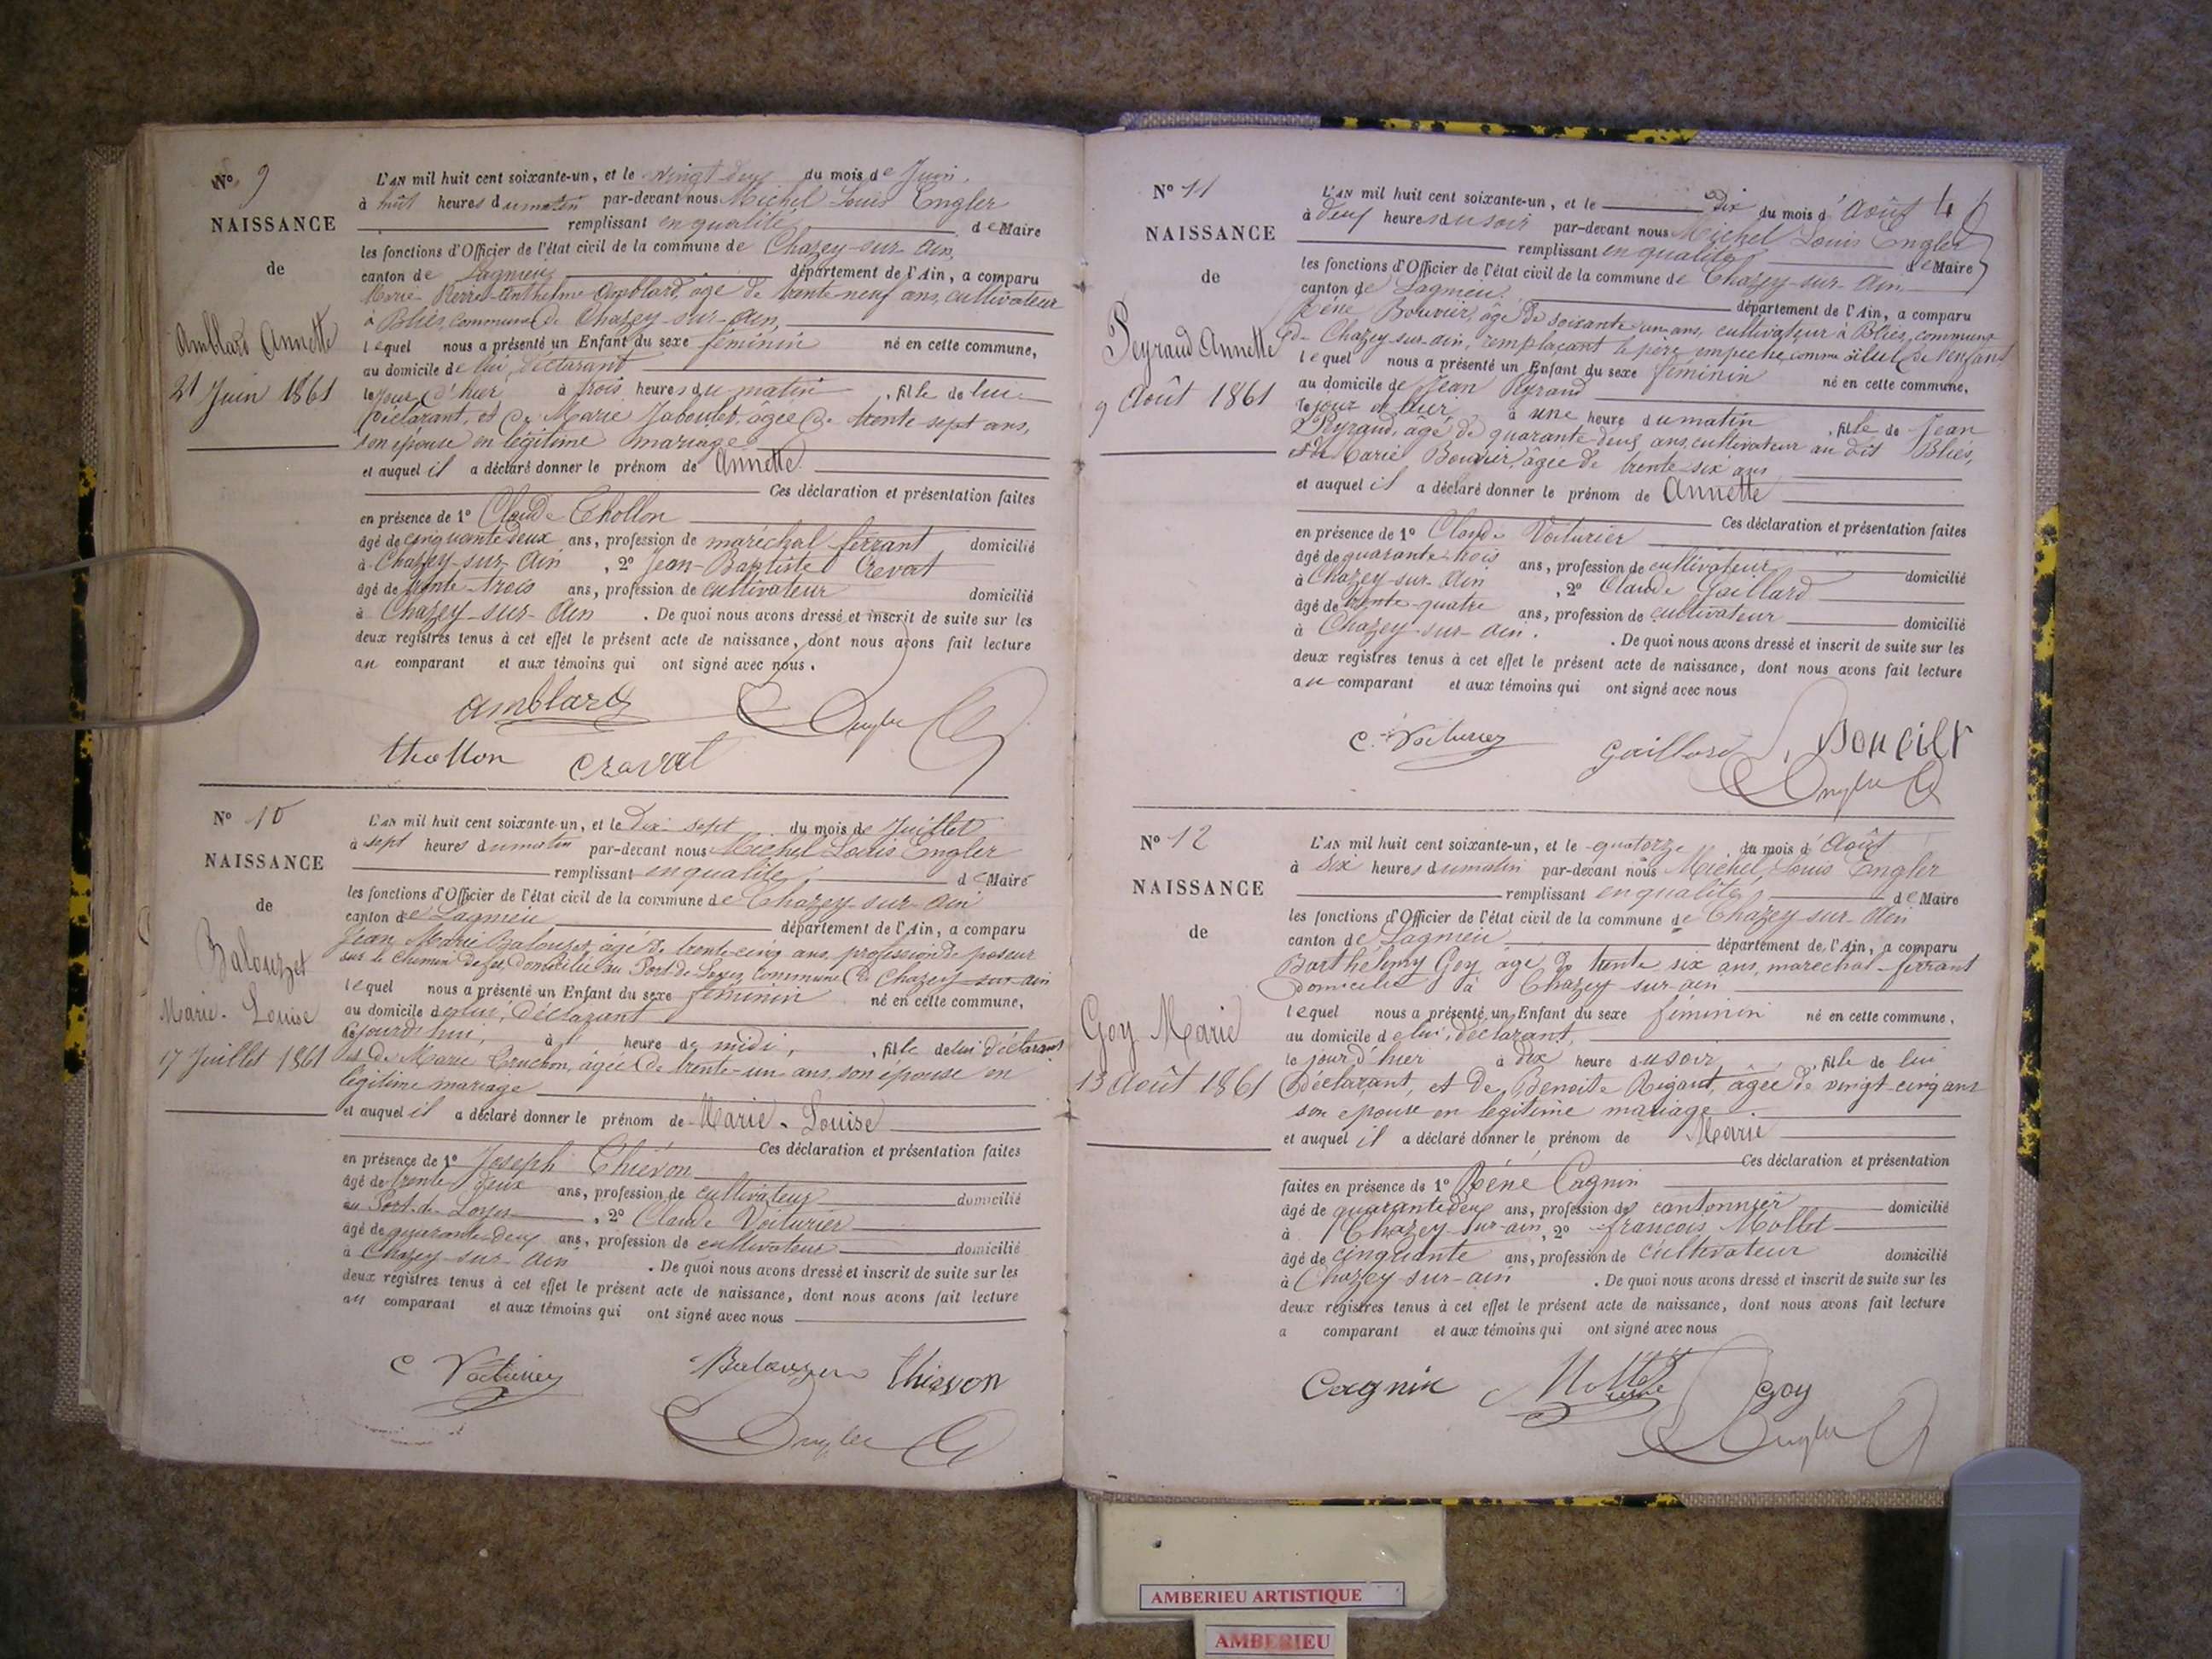 N° 9
NAISSANCE
de
Amblard Annette
21 Juin 1861
L'AN mil huit cent soixante-un, et le vingt deux du mois de Juin
à huit heures du matin par-devant nous Michel Louis Engler
remplissant en qualité de Maire
les fonctions d'Officier de l'état civil de la commune de Chazey-sur-Ain,
canton de Lagnieu département de l'Ain, a comparu
Marie-Pierre-Anthelme Amblard, âgé de trente-neuf ans, cultivateur
à Bliés, commune de Chazey-sur-Ain,
lequel nous a présenté un Enfant du sexe féminin né en cette commune,
au domicile de lui, déclarant
le jour d'hier à trois heures du matin, fille de lui
déclarant, et de Marie âgée de trente-sept ans,
son épouse en légitime mariage
et auquel il a déclaré donner le prénom de Annette
Ces déclaration et présentation faites
en présence de 1° Claude Chollon
âgé de cinquante deux ans, profession de maréchal ferrant domicilié
à Chazey-sur-Ain, 2° Jean-Baptiste Cravat
âgé de trente trois ans, profession de cultivateur domicilié
à Chazey-sur-Ain. De quoi nous avons dressé et inscrit de suite sur les
deux registres tenus à cet effet le présent acte de naissance, dont nous avons fait lecture
au comparant et aux témoins qui ont signé avec nous.
Amblard Engler
Cravat
N° 10
NAISSANCE
de
Balouzet
Marie-Louise
17 Juillet 1861
L'AN mil huit cent soixante-un, et le dix-sept du mois de Juillet
à sept heures du matin par-devant nous Michel Louis Engler
remplissant en qualité de Maire
les fonctions d'Officier de l'état civil de la commune de Chazey-sur-Ain
canton de Lagnieu département de l'Ain, a comparu
Jean Marie Balouzet, âgé de trente-cinq ans, profession de poseur
sur le Chemin de fer, domicilié au Port de Loyes, commune de Chazey-sur-Ain
lequel nous a présenté un Enfant du sexe féminin né en cette commune,
au domicile de lui, déclarant
le jourd'hui, à heure de midi, fille de lui déclarant
et de Marie Cruchon, âgée de trente-un ans, son épouse en
légitime mariage
et auquel il a déclaré donner le prénom de Marie-Louise
Ces déclaration et présentation faites
en présence de 1° Joseph Thiévon
âgé de trente deux ans, profession de cultivateur domicilié
au Port de Loyes, 2° Claude Voiturier
âgé de quarante-deux ans, profession de cultivateur domicilié
à Chazey-sur-Ain. De quoi nous avons dressé et inscrit de suite sur les
deux registres tenus à cet effet le présent acte de naissance, dont nous avons fait lecture
au comparant et aux témoins qui ont signé avec nous
C Voiturier Thiévon
Engler
N° 11
NAISSANCE
de
Peyraud Annette
9 Août 1861
L'AN mil huit cent soixante-un, et le Dix du mois d'Août
à deux heures du soir par-devant nous Michel Louis Engler
remplissant en qualité de Maire
les fonctions d'Officier de l'état civil de la commune de Chazey-sur-Ain
canton de Lagnieu département de l'Ain, a comparu
Réné Bouvier, âgé de soixante-un ans, cultivateur à Bliés, commune
de Chazey-sur-Ain, remplaçant le père empêché, comme aïeul de l'enfant
lequel nous a présenté un Enfant du sexe féminin né en cette commune.
au domicile de Jean Peyraud
le jour d'hier à une heure du matin, fille de Jean
Peyraud, âgé de quarante-deux ans, cultivateur au dit Bliés,
et de Marie Bouvier, âgée de trente-six ans
et auquel il a déclaré donner le prénom de Annette
Ces déclaration et présentation faites
en présence de 1° Claude Voiturier
âgé de quarante-trois ans, profession de cultivateur domicilié
à Chazey-sur-Ain, 2° Claude Gaillard
âgé de trente-quatre ans, profession de cultivateur domicilié
à Chazey-sur-Ain. De quoi nous avons dressé et inscrit de suite sur les
deux registres tenus à cet effet le présent acte de naissance, dont nous avons fait lecture
au comparant et aux témoins qui ont signé avec nous
C. Voiturier Gaillard
Engler
N° 12
NAISSANCE
de
Goy Marie
13 Août 1861
L'AN mil huit cent soixante-un, et le quatorze du mois d'Août
à six heures du matin par-devant nous Michel Louis Engler
remplissant en qualité de Maire
les fonctions d'Officier de l'état civil de la commune de Chazey-sur-Ain
canton de Lagnieu département de l'Ain, a comparu
Barthélemy Goy âgé de trente six ans, maréchal-ferrant
domicilié à Chazey-sur-ain
lequel nous a présenté un Enfant du sexe féminin né en cette commune,
au domicile de lui, déclarant,
le jour d'hier à dix heure du soir, fille de lui
déclarant, et de Benoite Rigaut, âgée de vingt-cinq ans
son épouse en légitime mariage.
et auquel il a déclaré donner le prénom de Marie
Ces déclaration et présentation
faites en présence de 1° Réné Cagnin
âgé de quarante deux ans, profession de cantonnier domicilié
à Chazey-sur-ain, 2° francois Mollet
âgé de cinquante ans, profession de cultivateur domicilié
à Chazey sur-ain. De quoi nous avons dressé et inscrit de suite sur les
deux registres tenus à cet effet le présent acte de naissance, dont nous avons fait lecture
a comparant et aux témoins qui ont signé avec nous
Cagnin Goy
Engler
AMBERIEU ARTISTIQUE
AMBERIEU